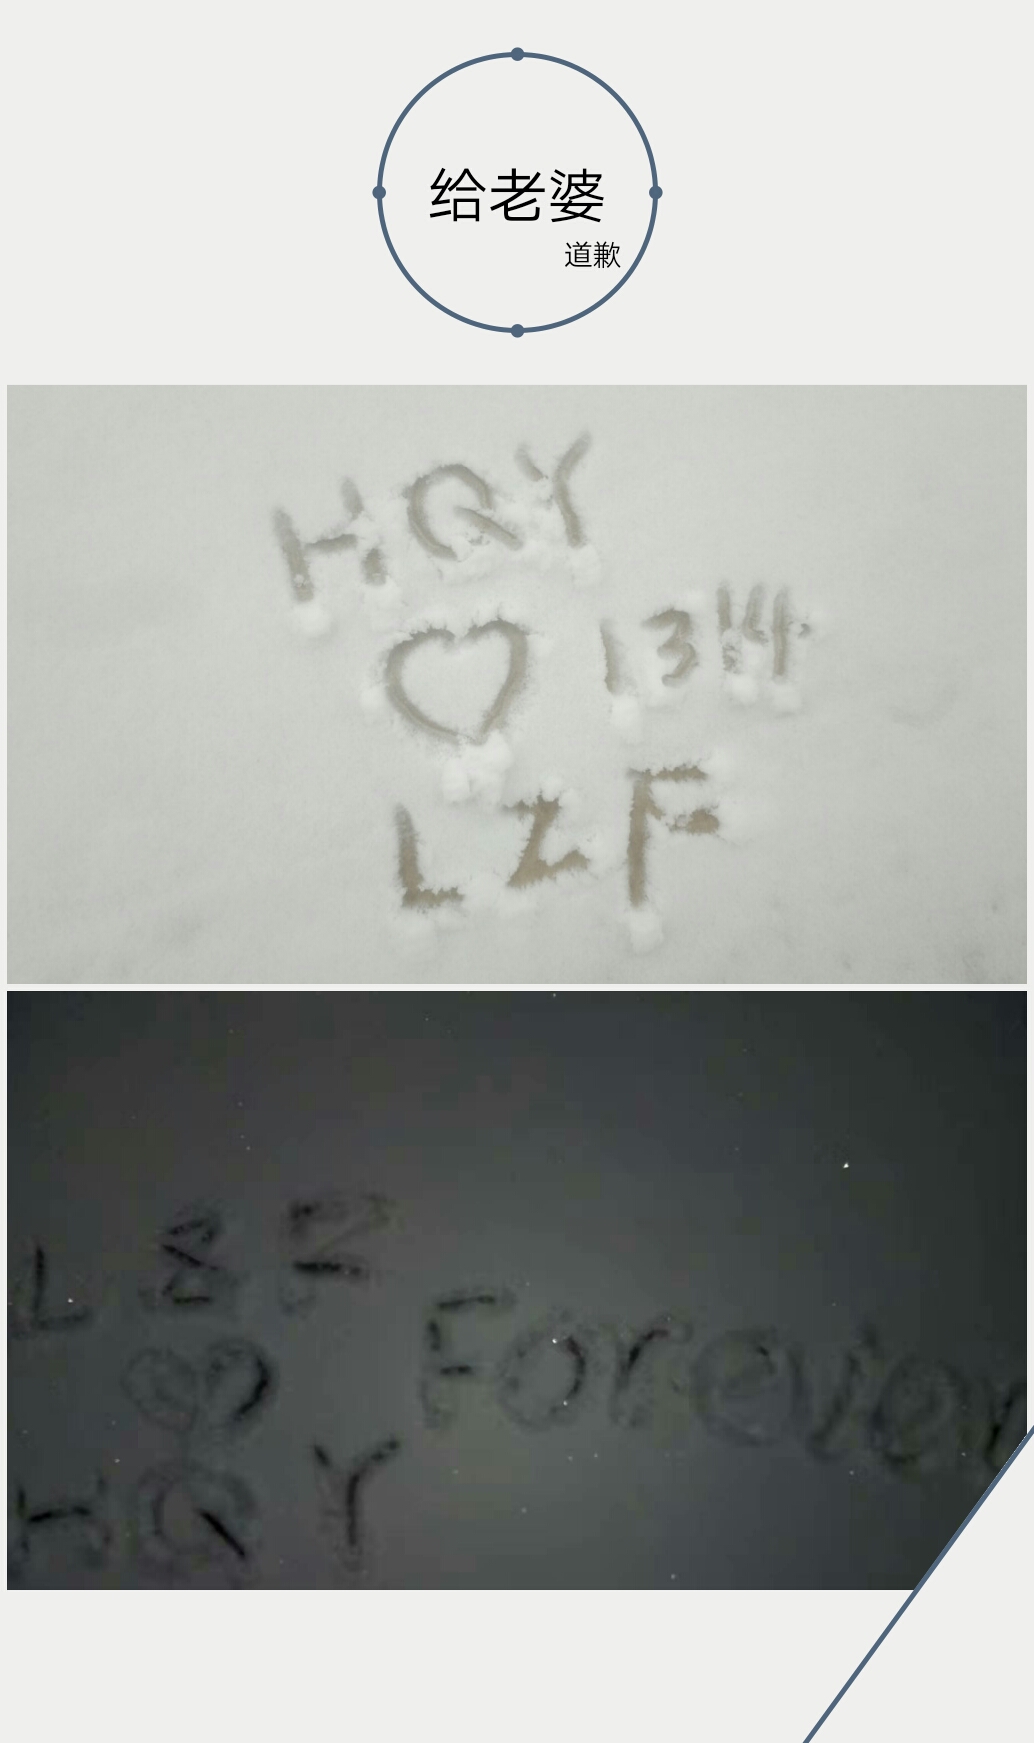 给老婆
道歉
HQY
♡ 1314
LZF
LZF
♡ Forever
HQY